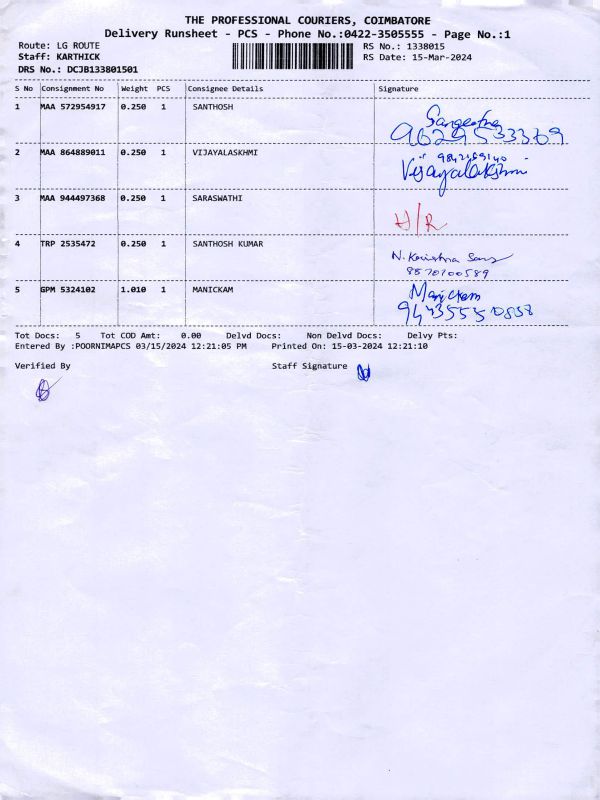 THE PROFESSIONAL COURIERS, COIMBATORE
Delivery Runsheet - PCS - Phone No.:0422-3505555 - Page No.:1
Route: LG ROUTE
RS No.: 1338015
Staff: KARTHICK
RS Date: 15-Mar-2024
DRS No.: DCJB133801501
S No Consignment No Weight PCS Consignee Details Signature
1 MAA 572954917 0.250 1 SANTHOSH
Sangeetha
9629533369
2 MAA 864889011 0.250 1 VIJAYALASKHMI
Vijayalakshmi
3 MAA 944497368 0.250 1 SARASWATHI
H/R
4 TRP 2535472 0.250 1 SANTHOSH KUMAR
N.
8570700589
5 GPM 5324102 1.010 1 MANICKAM
Manickam
Tot Docs: 5 Tot COD Amt: 0.00 Delvd Docs: Non Delvd Docs: Delvy Pts:
Entered By :POORNIMAPCS 03/15/2024 12:21:05 PM Printed On: 15-03-2024 12:21:10
Verified By Staff Signature